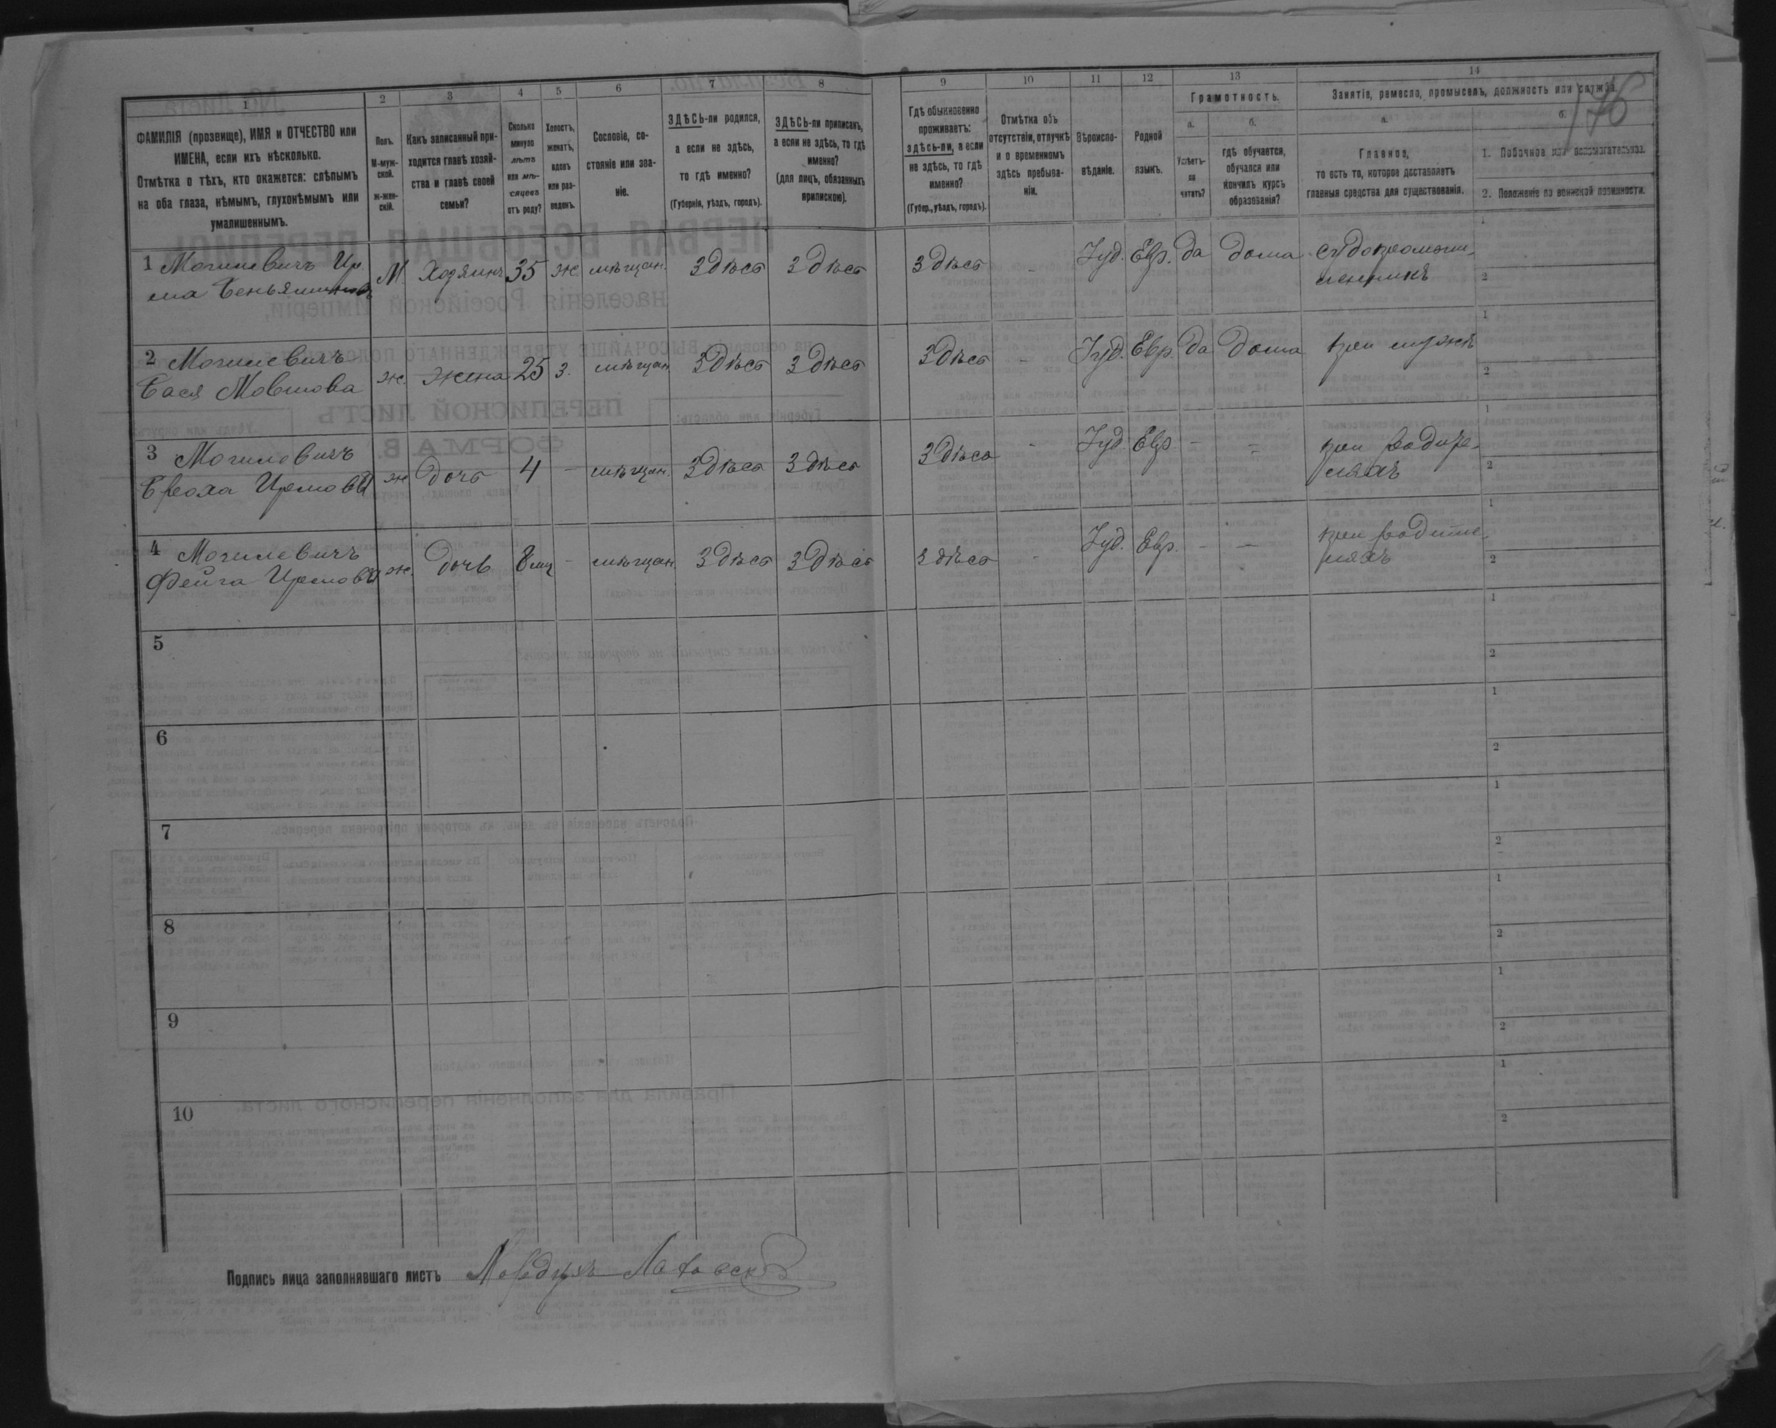 176
1 2 3 4 5 6 7 8 9 10 11 12 13 14
ФАМИЛІЯ (прозвище), ИМЯ и ОТЧЕСТВО или
ИМЕНА, если ихъ нѣсколько.
Отмѣтка о тѣхъ, кто окажется: слѣпымъ
на оба глаза, нѣмымъ, глухонѣмымъ или
умалишеннымъ.
Полъ.
М-муж-
ской.
ж-жен-
скій.
Какъ записанный при-
ходится главѣ хозяй-
ства и главѣ своей
семьи?
Сколько
минуло
лѣтъ
или мѣ-
сяцевъ
отъ роду?
Холостъ,
женатъ,
вдовъ
или раз-
веденъ.
Сословіе, со-
стояніе или зва-
ніе.
ЗДѢСЬ-ли родился,
а если не здѣсь,
то гдѣ именно?
(Губернія, уѣздъ, городъ).
ЗДѢСЬ-ли приписанъ,
а если не здѣсь, то гдѣ
именно?
(для лицъ, обязанныхъ
припискою).
Гдѣ обыкновенно
проживаетъ:
здѣсь-ли, а если
не здѣсь, то гдѣ
именно?
(Губер., уѣздъ, городъ).
Отмѣтка объ
отсутствіи, отлучкѣ
и о временномъ
здѣсь пребыва-
ніи.
Вѣроиспо-
вѣданіе.
Родной
языкъ.
Грамотность.
а.
Умѣетъ-
ли
читать?
б.
гдѣ обучается,
обучался или
кончилъ курсъ
образованія?
Занятіе, ремесло, промыселъ, должность или служба.
а.
Главное,
то есть то, которое доставляетъ
главныя средства для существованія.
б.
1. Побочное или вспомогательное.
2. Положеніе по воинской повинности.
1 Могилевичъ Ир
ма Беньяминов
М Хозяинъ 35 ж мѣщан. Здѣсь Здѣсь Здѣсь - Іуд. Евр. да дома
1
2
2 Могилевичъ
Бася Мовшова
ж. жена 25 з. мѣщан Здѣсь Здѣсь Здѣсь - Іуд. Евр. да дома при мужѣ
1
2
3 Могилевичъ
Броха
ж Дочь 4 - мѣщан. Здѣсь Здѣсь Здѣсь - Іуд. Евр - - при родите-
ляхъ
1
2
4 Могилевичъ
Фейга
ж. Дочь 8 мц - мѣщан. Здѣсь Здѣсь Здѣсь - Іуд. Евр. - - при родите
ляхъ
1
2
5
1
2
6
1
2
7
1
2
8
1
2
9
1
2
10
1
2
Подпись лица заполнявшаго листъ